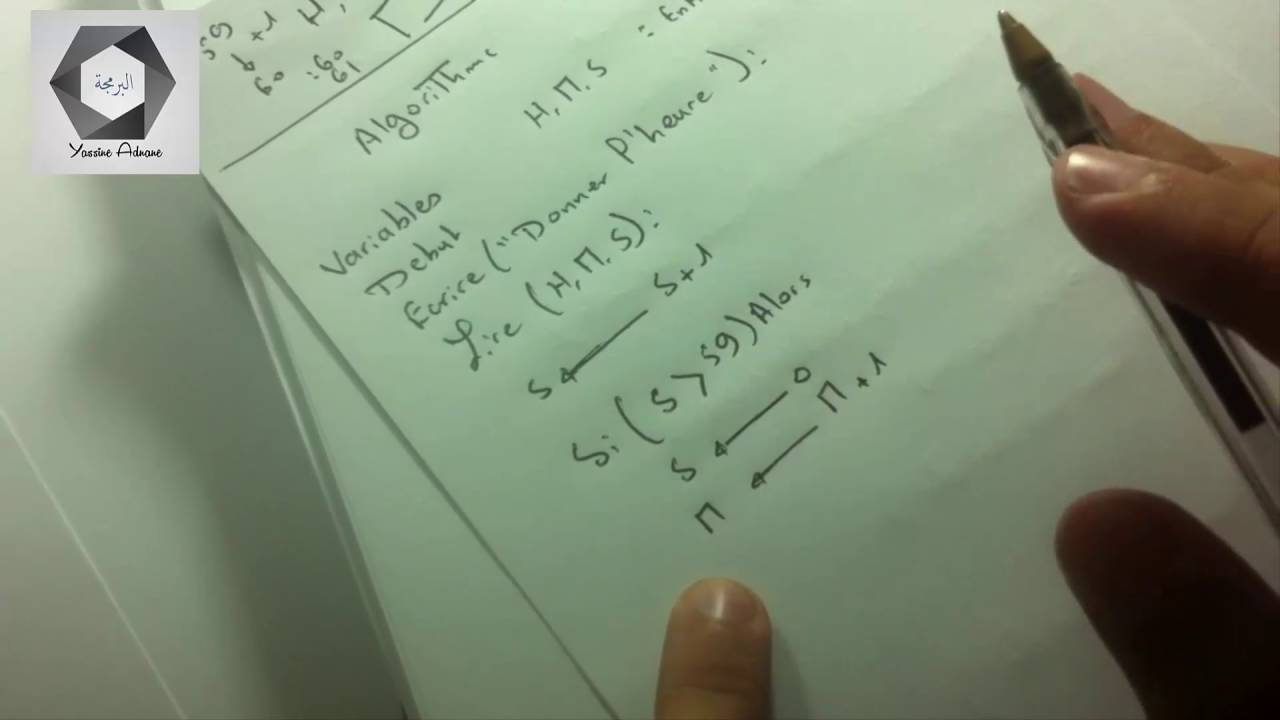 البرمجة
Yassine Adnane
59
+1
60
:60
61
Algorithme
Variables H, M, S :
Debut
Ecrire ("Donner l'heure");
Lire (H, M, S);
S ← S+1
Si (S > 59) Alors
S ← 0
M ← M+1